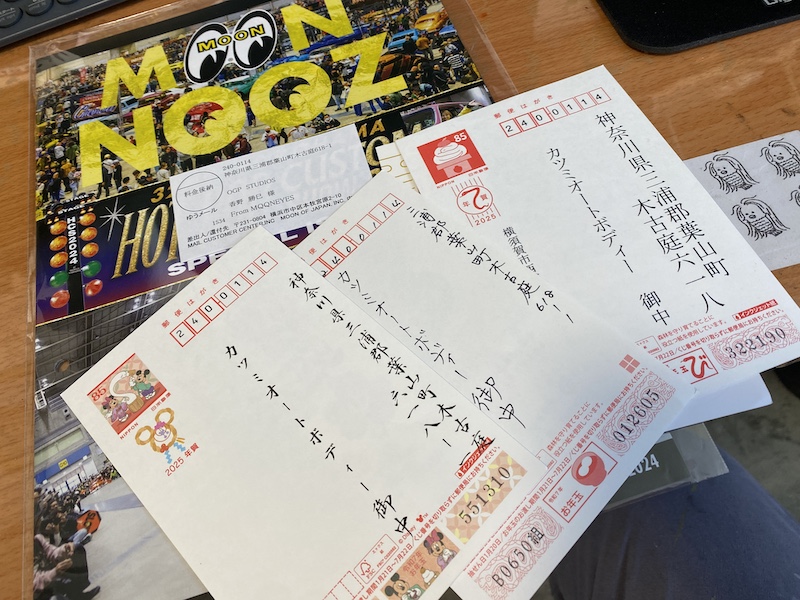 MOON
MOON
NOOZ
240-0114
神奈川県三浦郡葉山町木古庭618-1
OGP STUDIOS
香野 勝巳 様
1534 From MQQNEYES
料金後納
ゆうメール
差出人/還付先 〒231-0804 横浜市中区本牧宮原2-10
MAIL CUSTOMER CENTER, INC. MOON OF JAPAN, INC.
HCS2024
SPECIAL
郵便はがき
2400114
85
NIPPON 日本郵便
年賀
2025
神奈川県三浦郡葉山町
木古庭六一八
カツミオートボディー 御中
横須賀市
インクジェット紙
322190
2400114
三浦郡葉山町木古庭618-1
カツミオートボディー 御中
012605
B0650組
お年玉
郵便はがき
2400114
85
NIPPON 日本郵便
2025 年賀
神奈川県三浦郡葉山町木古庭
六一八-
カツミオートボディー 御中
551310
© Disney
2024